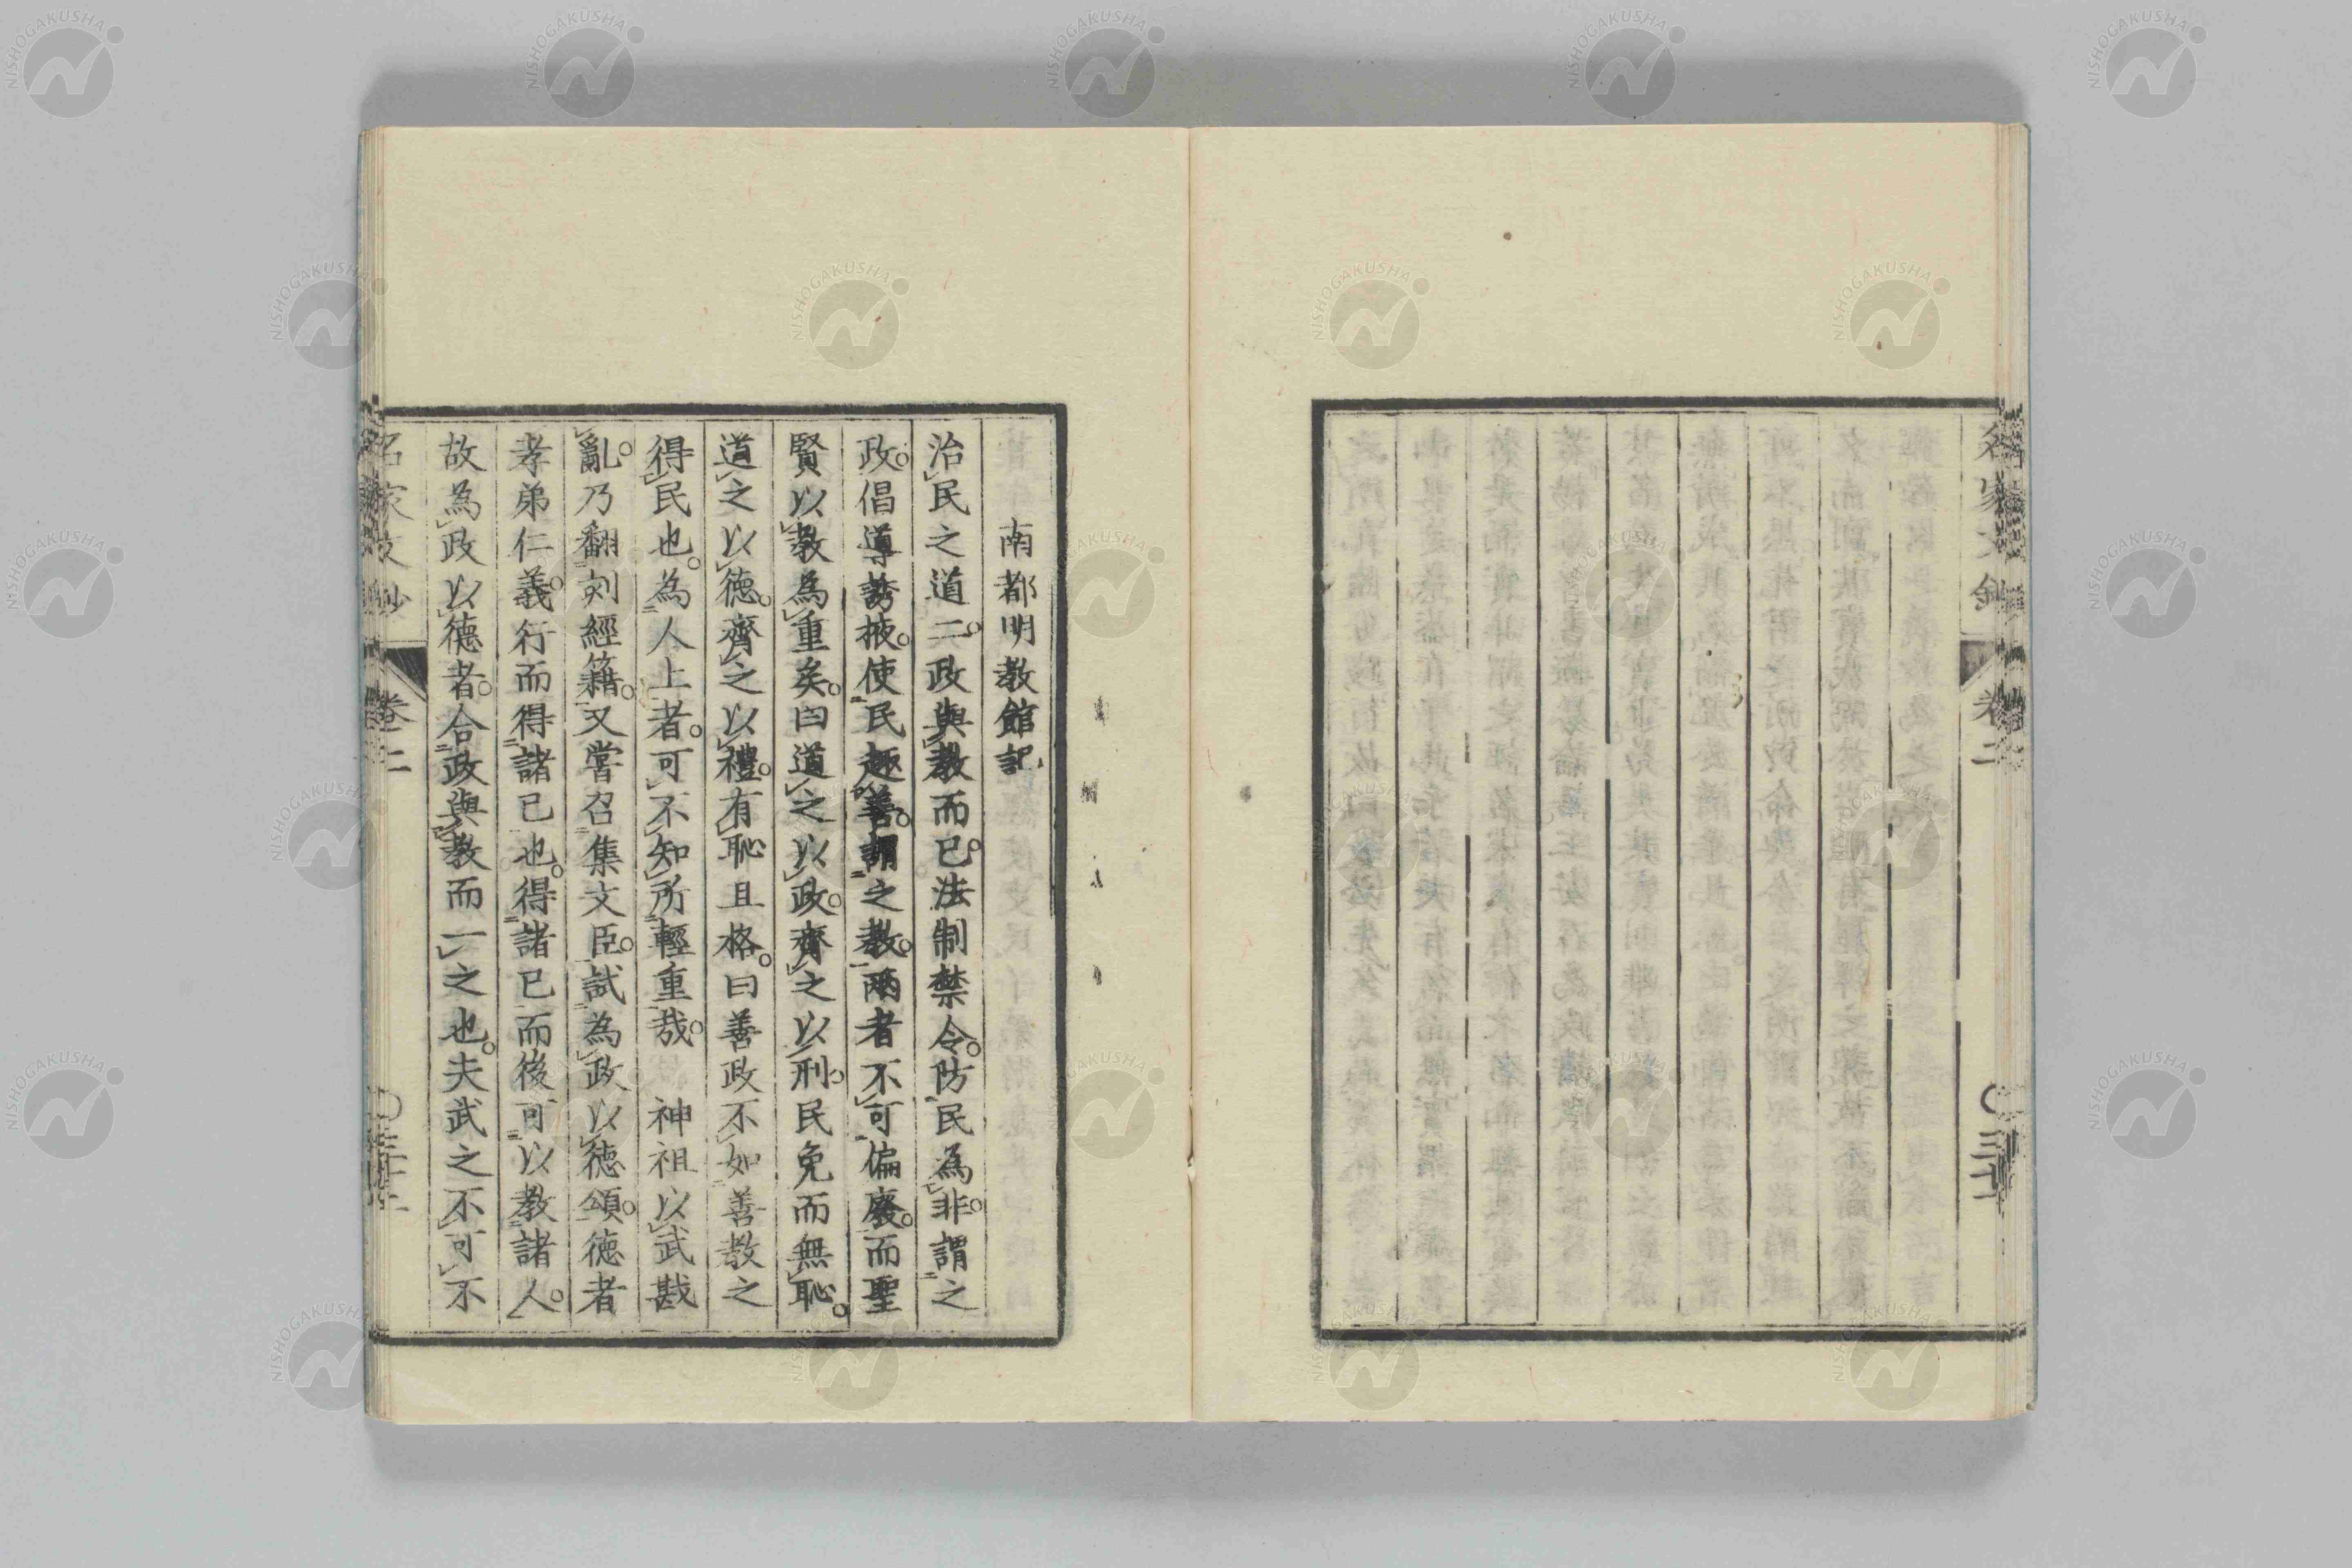 名家文鈔
卷二
南都明教館記
治民之道二。政與教而已。法制禁令。防民為非。謂之
政。倡導誘掖。使民趣善。謂之教。兩者不可偏廢。而聖
賢以教為重矣。曰道之以政。齊之以刑。民免而無恥。
道之以德。齊之以禮。有恥且格。曰善政不如善教之
得民也。為人上者。可不知所輕重哉。 神祖以武戡
亂。乃翻刻經籍。又嘗召集文臣。試為政以德頌。德者
孝弟仁義。行而得諸己也。得諸己而後可以教諸人。
故為政以德者。合政與教而一之也。夫武之不可不
名家文鈔
卷二
NISHOGAKUSHA